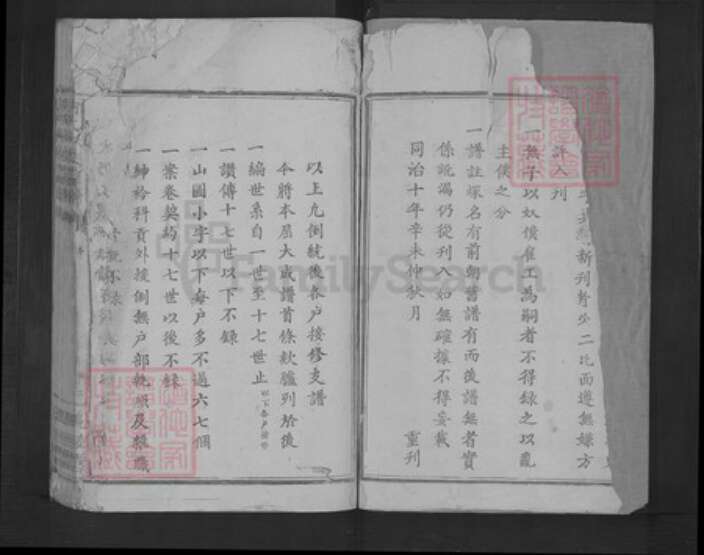 新刊
二比面遵無嫌方
許入刊
一無子以奴僕雇工為嗣者不得錄之以亂
主僕之分
一譜註塚名有前朝舊譜有而後譜無者實
係訛漏仍從刊入如無確據不得妄載
同治十年辛未仲秋月 重刊
以上九例統後各戶接修支譜
今將本届大成譜首條款臚列於後
一編世系自一世至十七世止以下各戶接修
一讚傳十七世以下不錄
一山圖小字以下每戶多不過六七個
一案卷契約十七世以後不錄
一紳衿科貢外援例無戶部執照及
不錄
FamilySearch